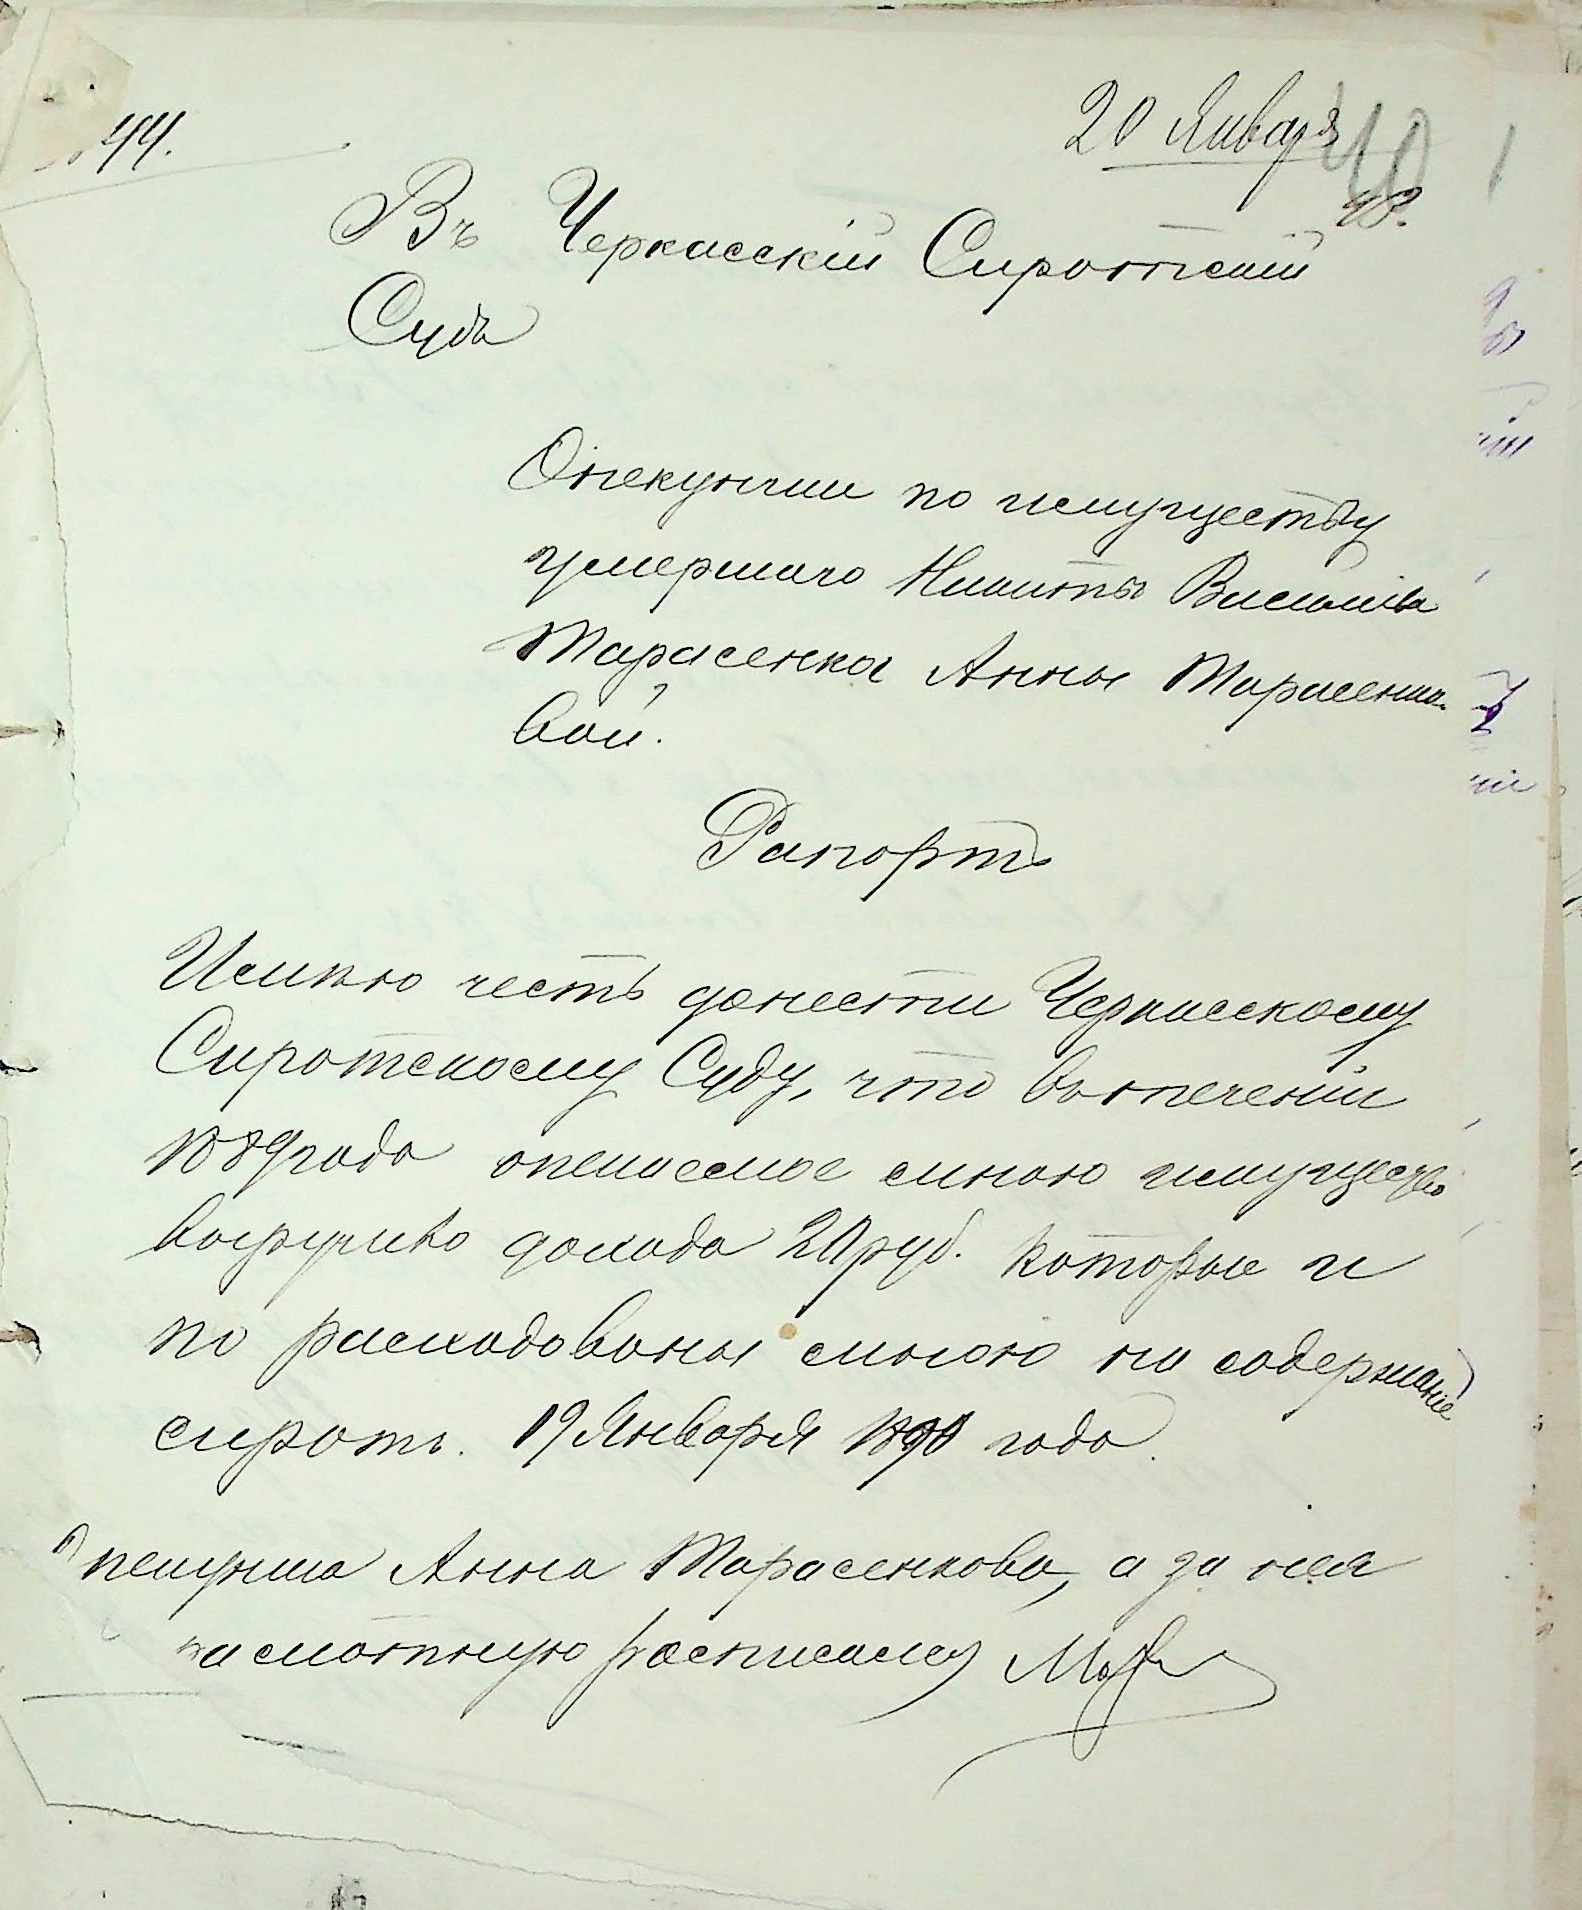 44.
20 Января
40
48.
Въ Черкасскій Сиротскій
Судъ
Опекунши по имуществу
умершаго Никиты Васильева
Тарасенка Анны Тарасенко-
вой.
Рапортъ
Имѣю честь донести Черкасскому
Сиротскому Суду, что втеченіи
1889 года опекаемое мною имущество
выручило дохода 20 руб. которые и
по расходованы мною на содержаніе
сиротъ. 19 Января 1890 года.
Опекунша Анна Тарасенкова, а за нея
неграмотную росписался